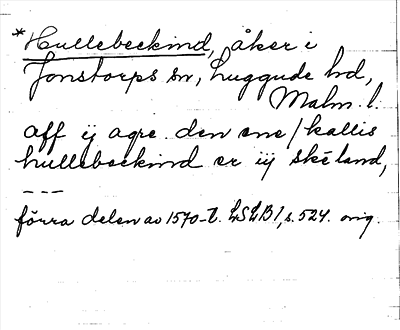 *Hullebeckind, åker i
Jonstorps sn, Luggude hd,
Malm. l.
aff ij agre den ene / kallis
hullebeckind er iij ske land,
---
förra delen av 1570-t. LSLB 1, s. 524. orig.